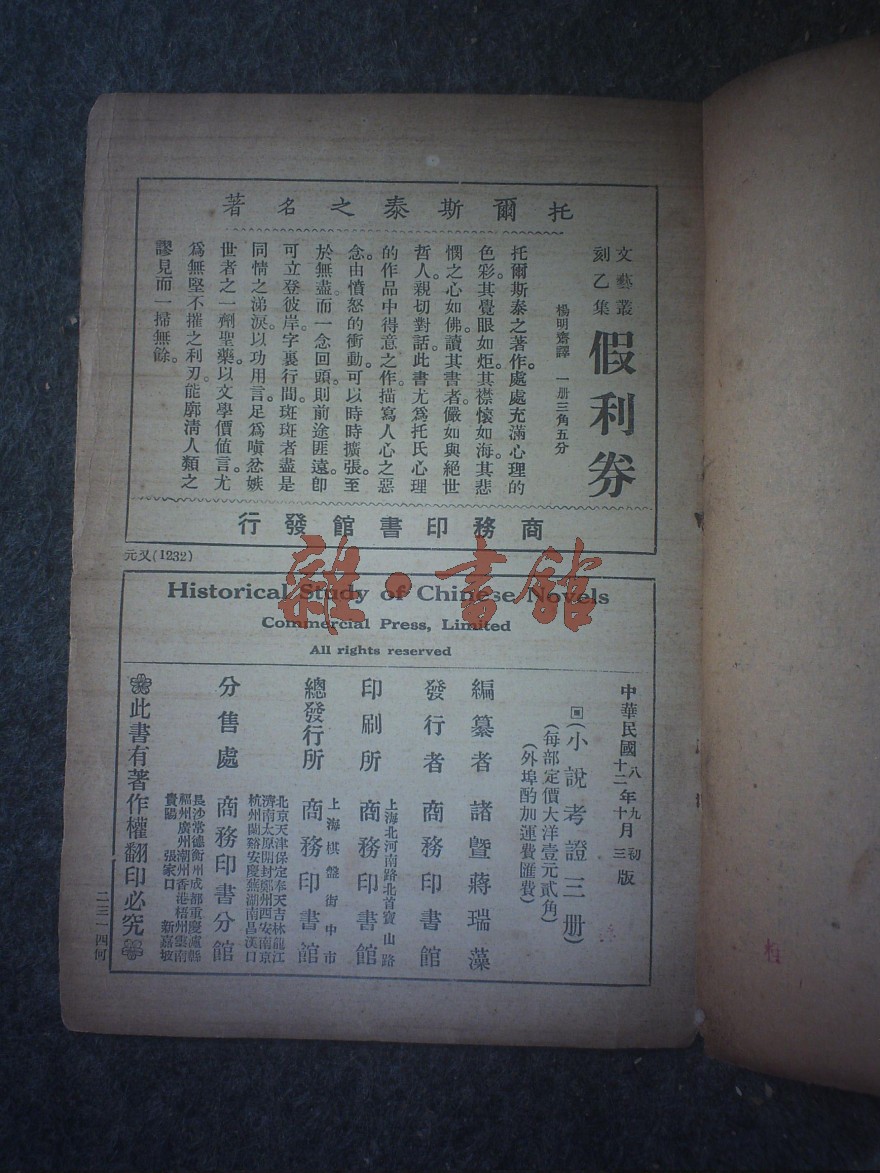 托爾斯泰之名著
文藝叢
刻乙集
假利券
楊明齋譯 一册三角五分
托爾斯泰之著作。處處充滿心理的
色彩。其覺眼如炬。其襟懷如海。其悲
憫之心如佛。讀其書者。儼如與絕世
哲人。親切對話。此書尤爲托氏心理
的作品中得意之作。描寫人心之惡
念。由憤怒的衝動。可以時時擴張。至
於無盡。而一念回頭。則前途匪遠。卽
可立登彼岸。字裏行間。斑斑者盡是
同情之涕淚。以功用言。足爲嗔忿嫉
世者之一劑聖藥。以文學價値言。尤
爲無堅不摧之利刃。能廓淸人類之
謬見而一掃無餘。
商務印書館發行
元又(1232)
Historical Study of Chinese Novels
Commercial Press, Limited
All rights reserved
中華民國八年九月初版
十二年十月三版
(小說考證三册)
(每部定價大洋壹元貳角)
(外埠酌加運費匯費)
編纂者 諸暨蔣瑞藻
發行者 商務印書館
印刷所 上海北河南路北首寶山路 商務印書館
總發行所 上海棋盤街中市 商務印書館
分售處 商務印書分館
北京天津保定奉天吉林龍江
濟南太原開封鄭州西安南京
杭州蘭谿安慶蕪湖南昌漢口
長沙常德衡州成都重慶瀘縣
福州廣州潮州香港梧州雲南
貴陽 張家口 新嘉坡
此書有著作權翻印必究
二三一四何
雜·書館